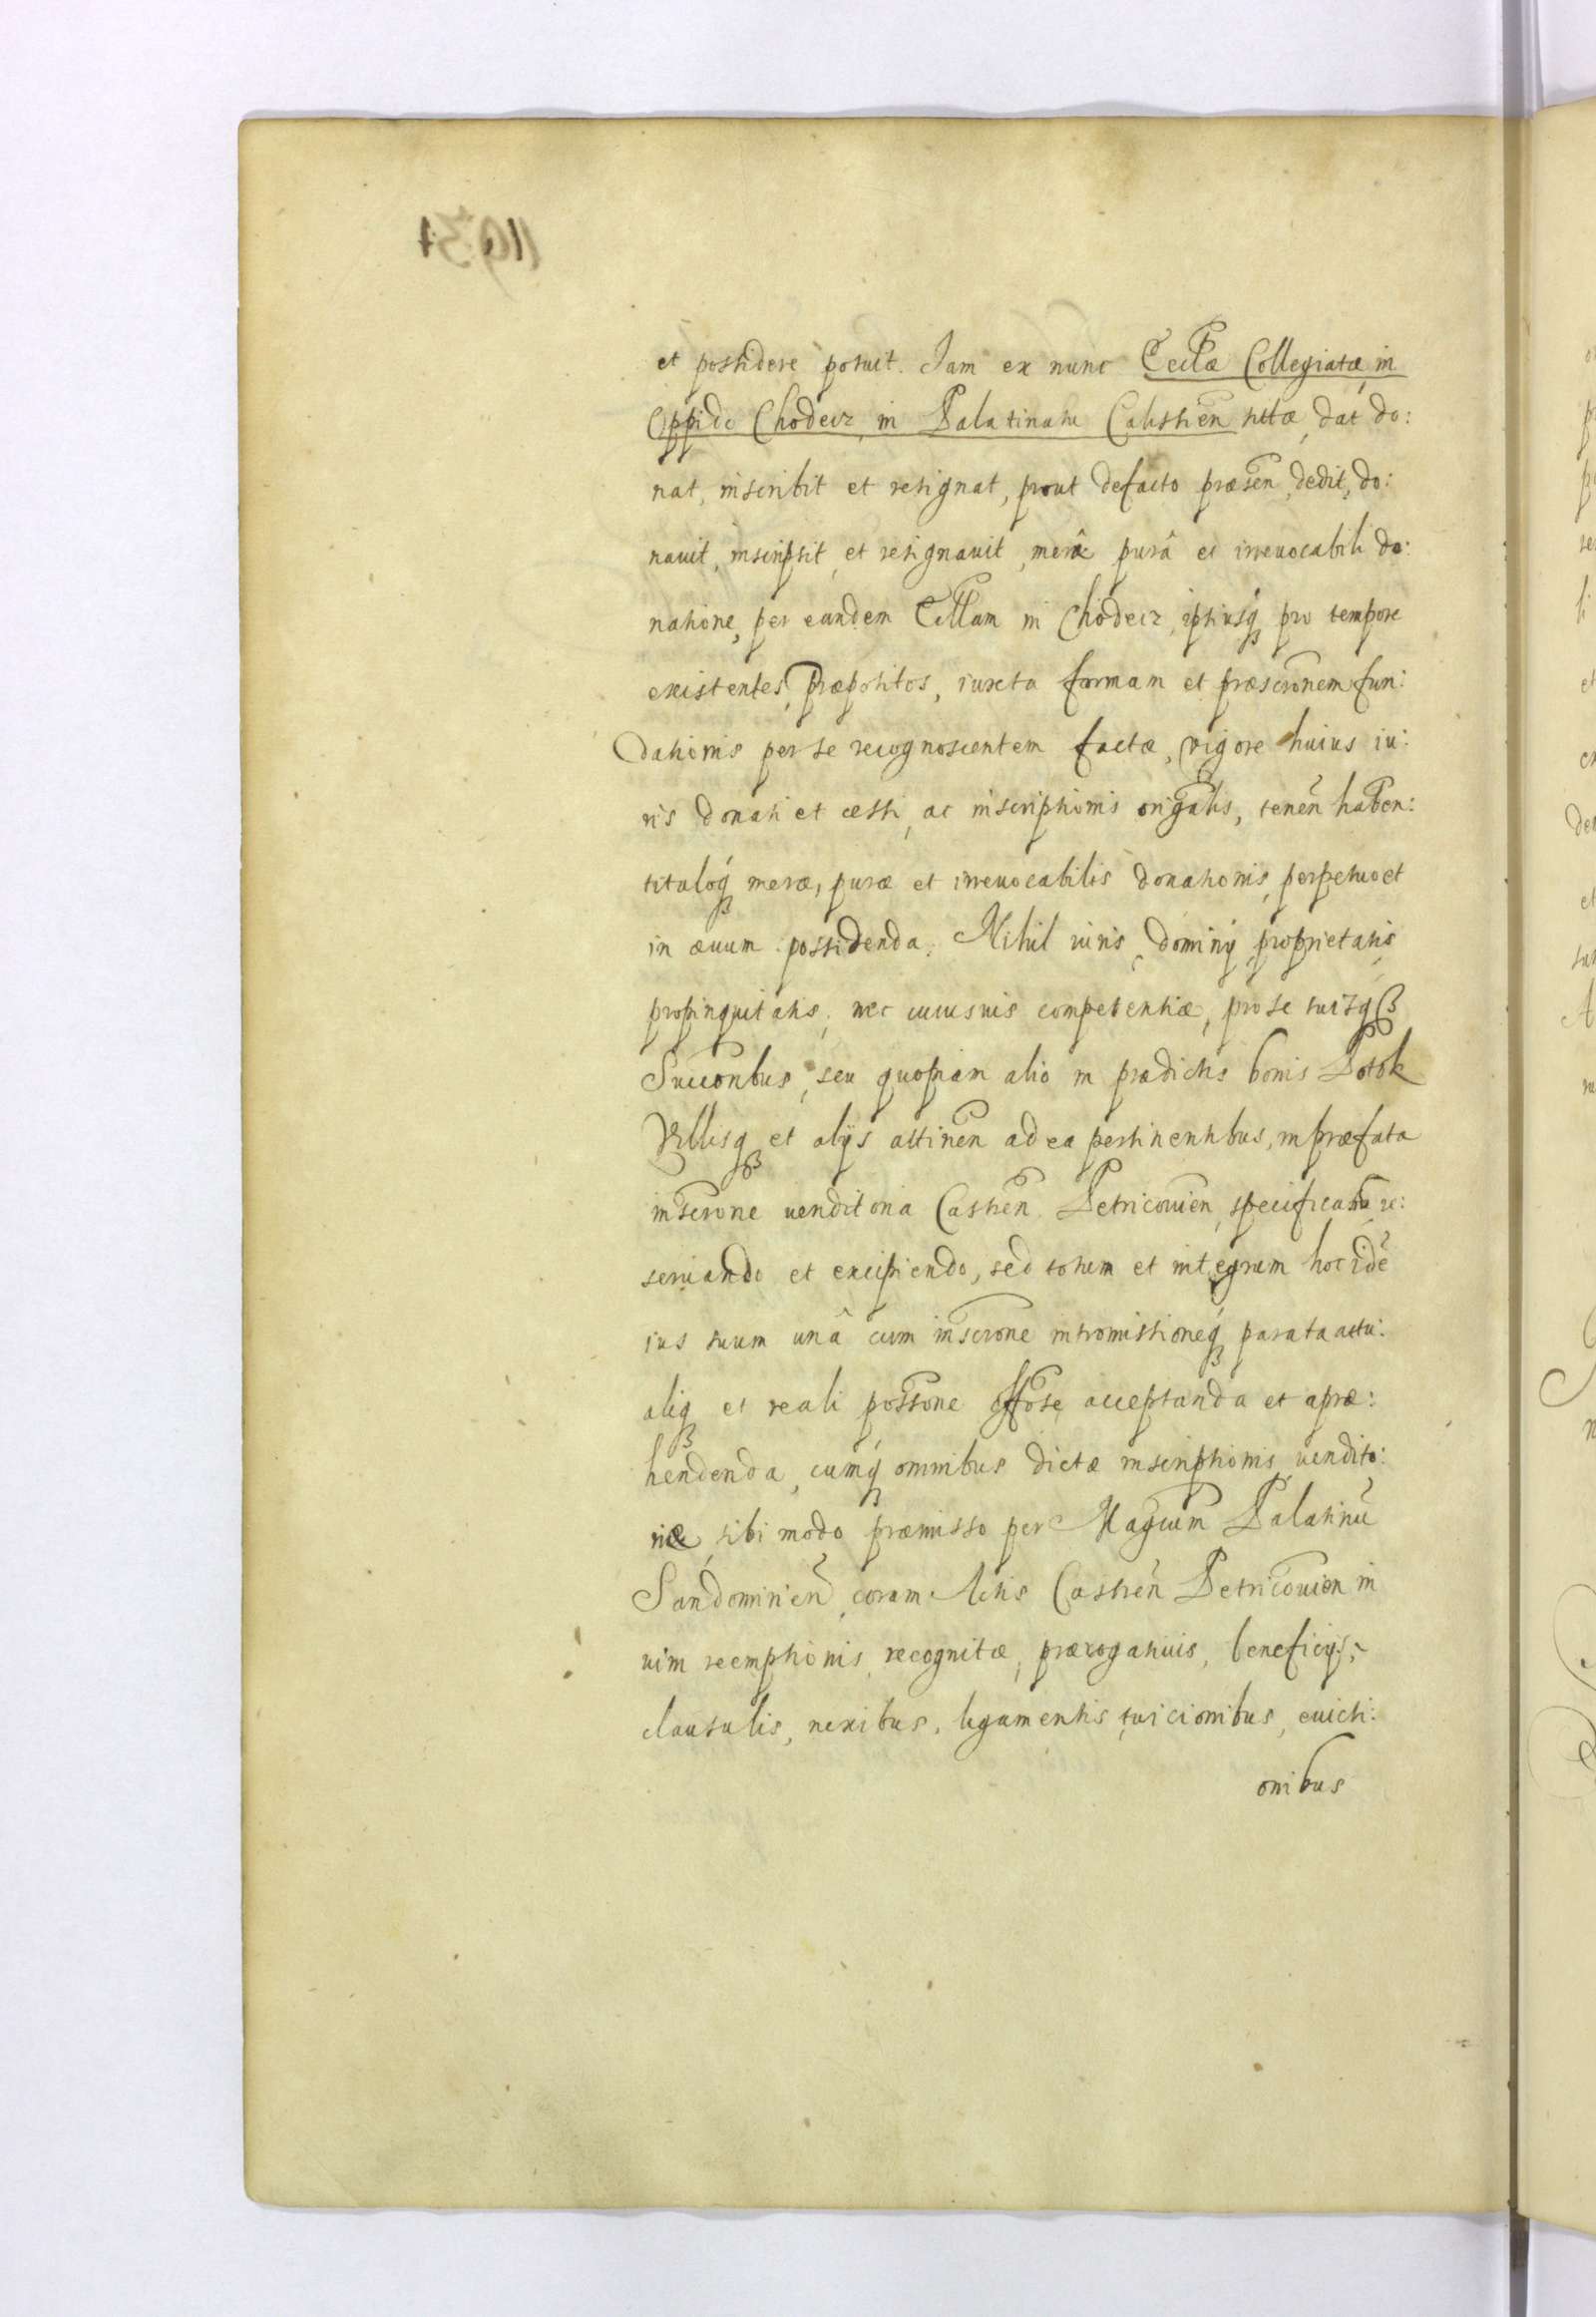 et possidere potuit. Iam ex nunc Eccłæ Collegiatæ in
Oppido Chodecz, in Palatinatu Calissien̄ sitæ, dat do:
nat, inscribit et resignat, prout defacto præsen̄, dedit, do:
nauit, inscripsit, et resignauit, merâ purâ et irreuocabili do:
natione, per eandem Ecclłam in Chodecz, ipsiusq3 pro tempore
existentes, Præpositos, iuxta formam et præscrōnem fun:
dationis per se recognoscentem factæ, vigore huius iu:
ris donati et cessi, ac inscriptionis originalis, tenen̄ haben̄:
tituloq3 meræ, puræ et irreuocabilis donationis, perpetuo et
in æuum possidenda. Nihil iuris, dominij, proprietatis
propinquitatis, nec cuiusuis competentiæ, pro se suisq3
Succōribus, seu quopiam alio in prædictis bonis Potok
Villisq3 et alijs attinen̄ ad ea pertinentibus, in præfata
inscrōne venditoria Castren̄ Petricouien̄, specificatis re:
seruando et excipiendo, sed totum et integrum hoc idē
ius suum unâ cum inscrōne intromissioneq3 parata actu:
aliq3 et reali possōne acceptanda et apræ:
hendenda, cumq3 omnibus dictæ inscriptionis, vendito:
riæ, sibi modo præmisso per Magcum Palatinū
Sandomirien̄, coram Actis Castren̄ Petricouien̄ in
uim reemptionis, recognitæ, prærogatiuis, beneficijs,
clausulis, nexibus, ligamentis, tuicionibus, euicti:
onibus